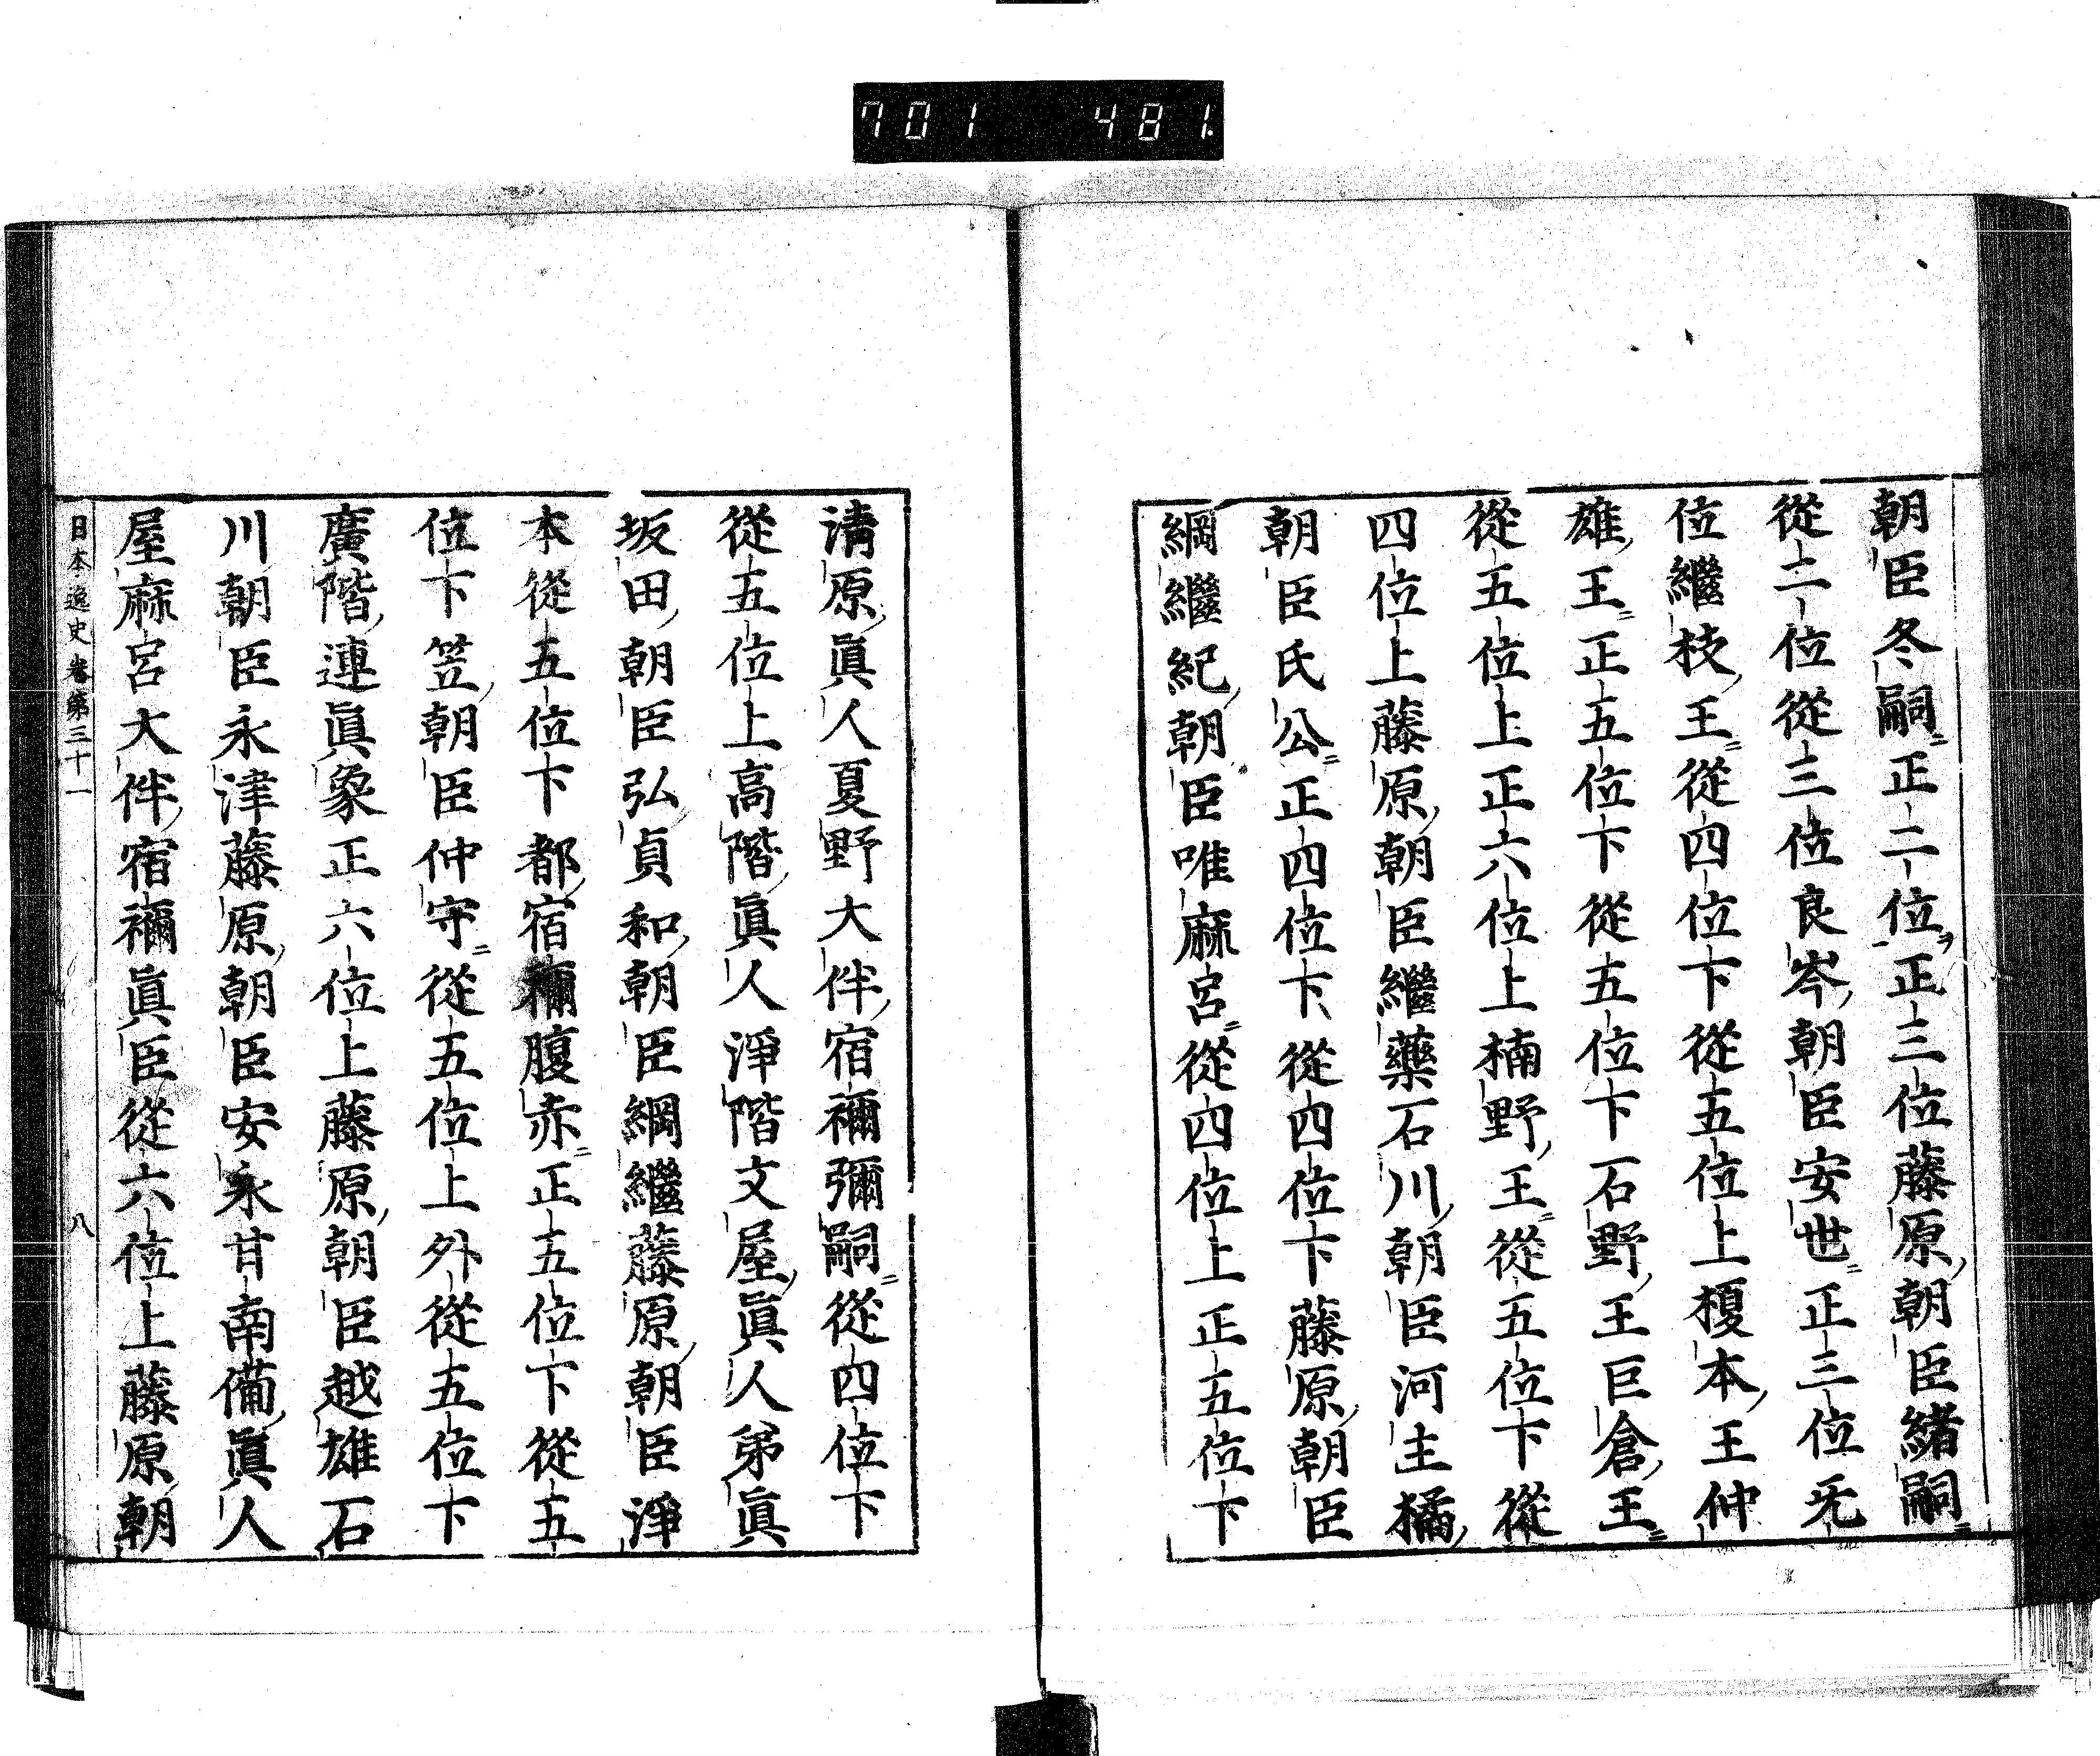 701 481
朝臣冬嗣正二位正三位藤原朝臣緒嗣
從二位從三位良岑朝臣安世正三位无
位繼枝王從四位下從五位上榎本王仲
雄王正五位下從五位下石野王巨倉王
從五位上正六位上楠野王從五位下從
四位上藤原朝臣繼藥石川朝臣河主橘
朝臣氏公正四位下從四位下藤原朝臣
綱繼紀朝臣唯麻呂從四位上正五位下
清原眞人夏野大伴宿禰彌嗣從四位下
從五位上高階眞人淨階文屋眞人弟眞
坂田朝臣弘貞和朝臣綱繼藤原朝臣淨
本從五位下都宿禰腹赤正五位下從五
位下笠朝臣仲守從五位上外從五位下
廣階連眞象正六位上藤原朝臣越雄石
川朝臣永津藤原朝臣安永甘南備眞人
屋麻呂大伴宿禰眞臣從六位上藤原朝
日本逸史卷第三十一 八